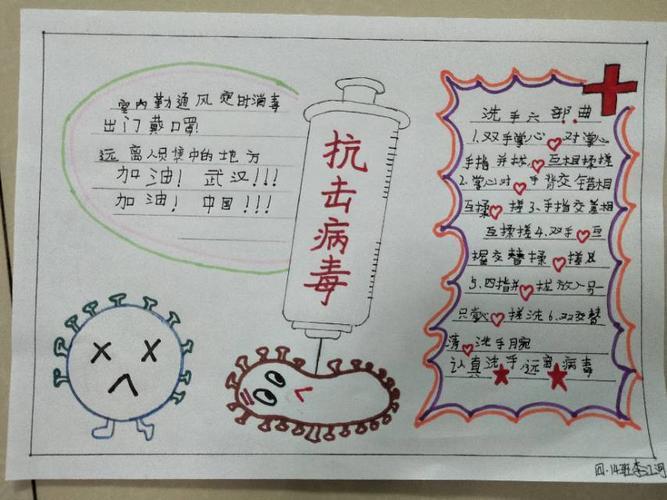 室内勤通风定时消毒
出门戴口罩!
远离人员集中的地方
加油! 武汉!!!
加油! 中国!!!
抗击病毒
洗手六部曲
1.双手掌心对掌心
手指并拢互相揉搓
2.掌心对手背交错相
互揉搓3.手指交差相
互揉搓4.双手互
握交替揉搓
5.四指并拢放入另
只掌心搓洗6.双交替
清洗手腕
认真洗手远离病毒
四.14班